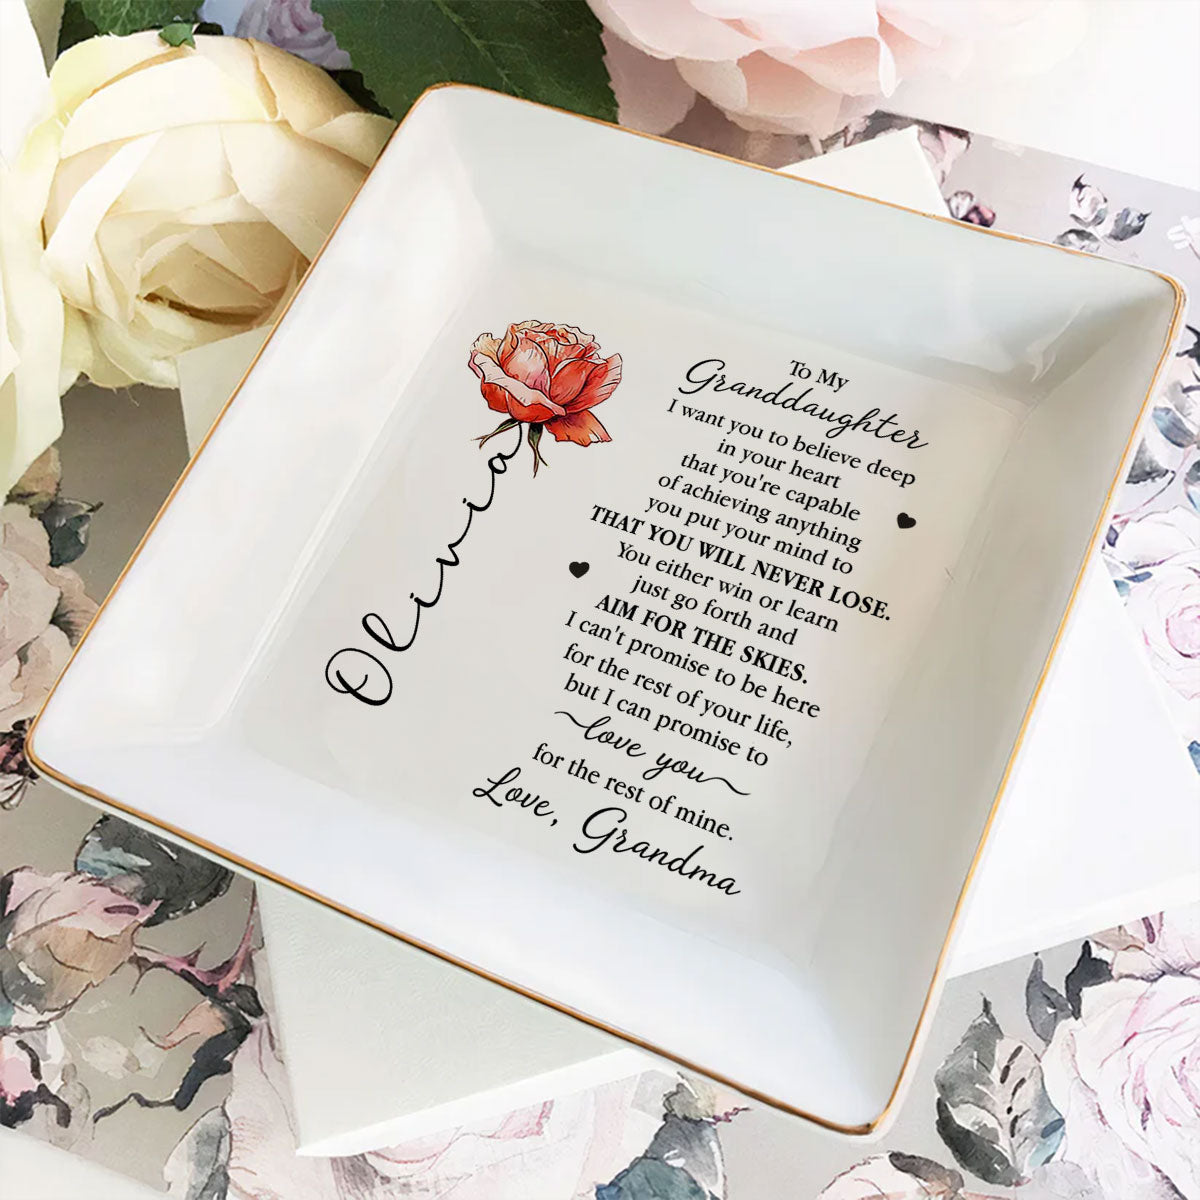 Olivia
To My
Granddaughter
I want you to believe deep
in your heart
that you're capable
of achieving anything
you put your mind to
THAT YOU WILL NEVER LOSE.
You either win or learn
just go forth and
AIM FOR THE SKIES.
I can't promise to be here
for the rest of your life,
but I can promise to
love you
for the rest of mine.
Love, Grandma